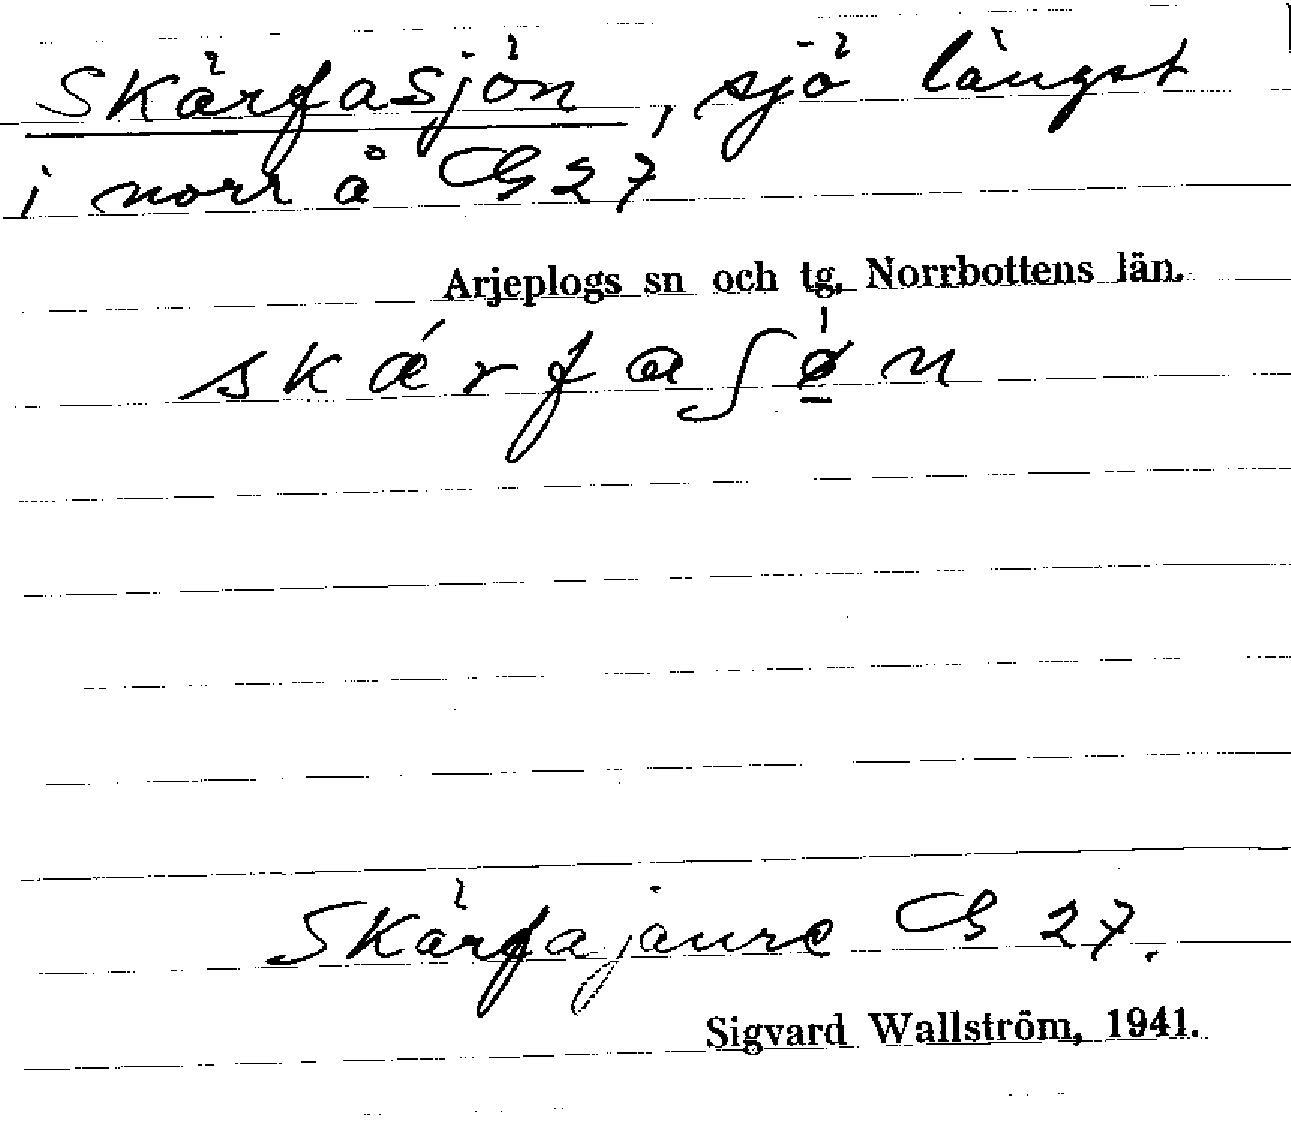 Skärfasjön, sjö längst
i norr å GB 27
Arjeplogs sn och tg, Norrbottens län.
skǽrfaʃǿ̱n
Skärfajaure GB 27.
Sigvard Wallström, 1941.